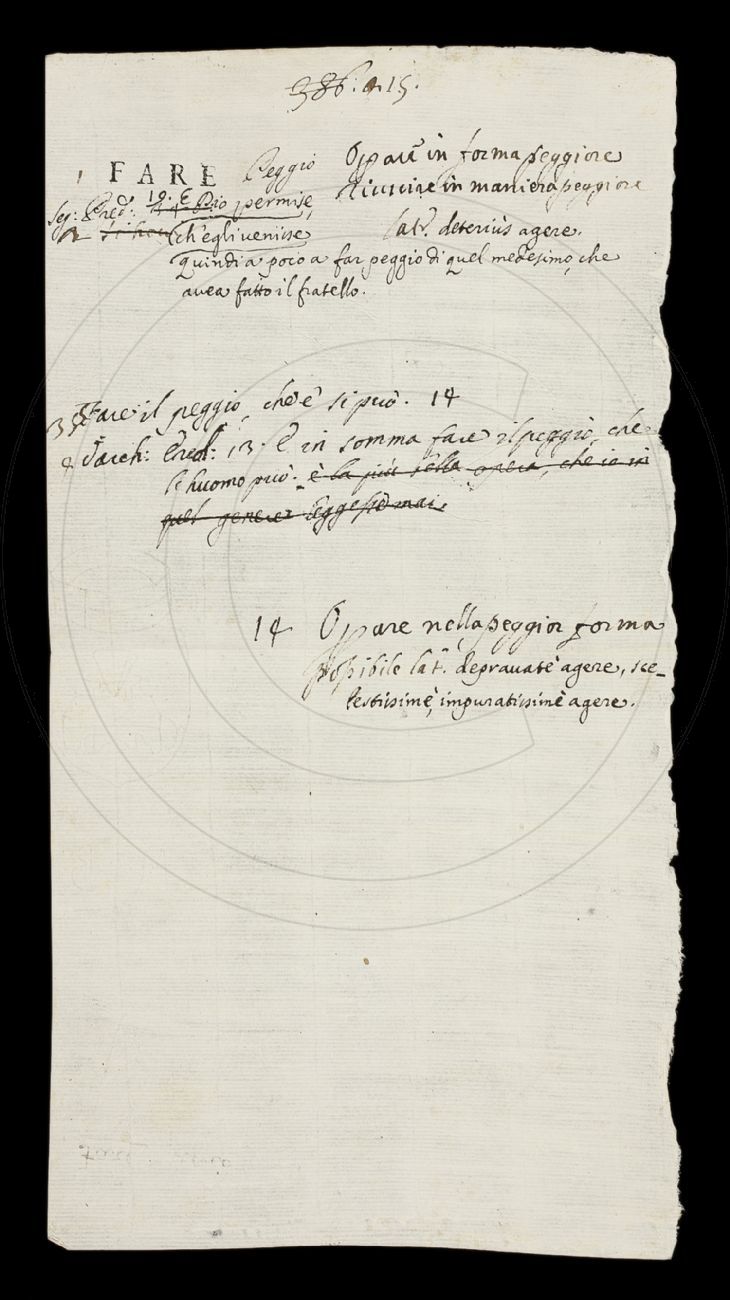 386. a 15.
1 FARE Peggio Operare in forma peggiore
Riuscire in maniera peggiore
Seg: Pred: 19. E Dio permise,
2 ch'egli venisse lat. deteriùs agere.
quindi a poco a far peggio di quel medesimo, che
avea fatto il fratello.
Fare il peggio, che è si può. 14
Varch: Ercol: 13. E in somma fare il peggio, che
l'huomo può. è la più bella opera, che io in
quel genere leggessi mai.
14 Oprare nella peggior forma
possibile lat. deprauatè agere, sce-
lestissimè, impuratissimè agere.